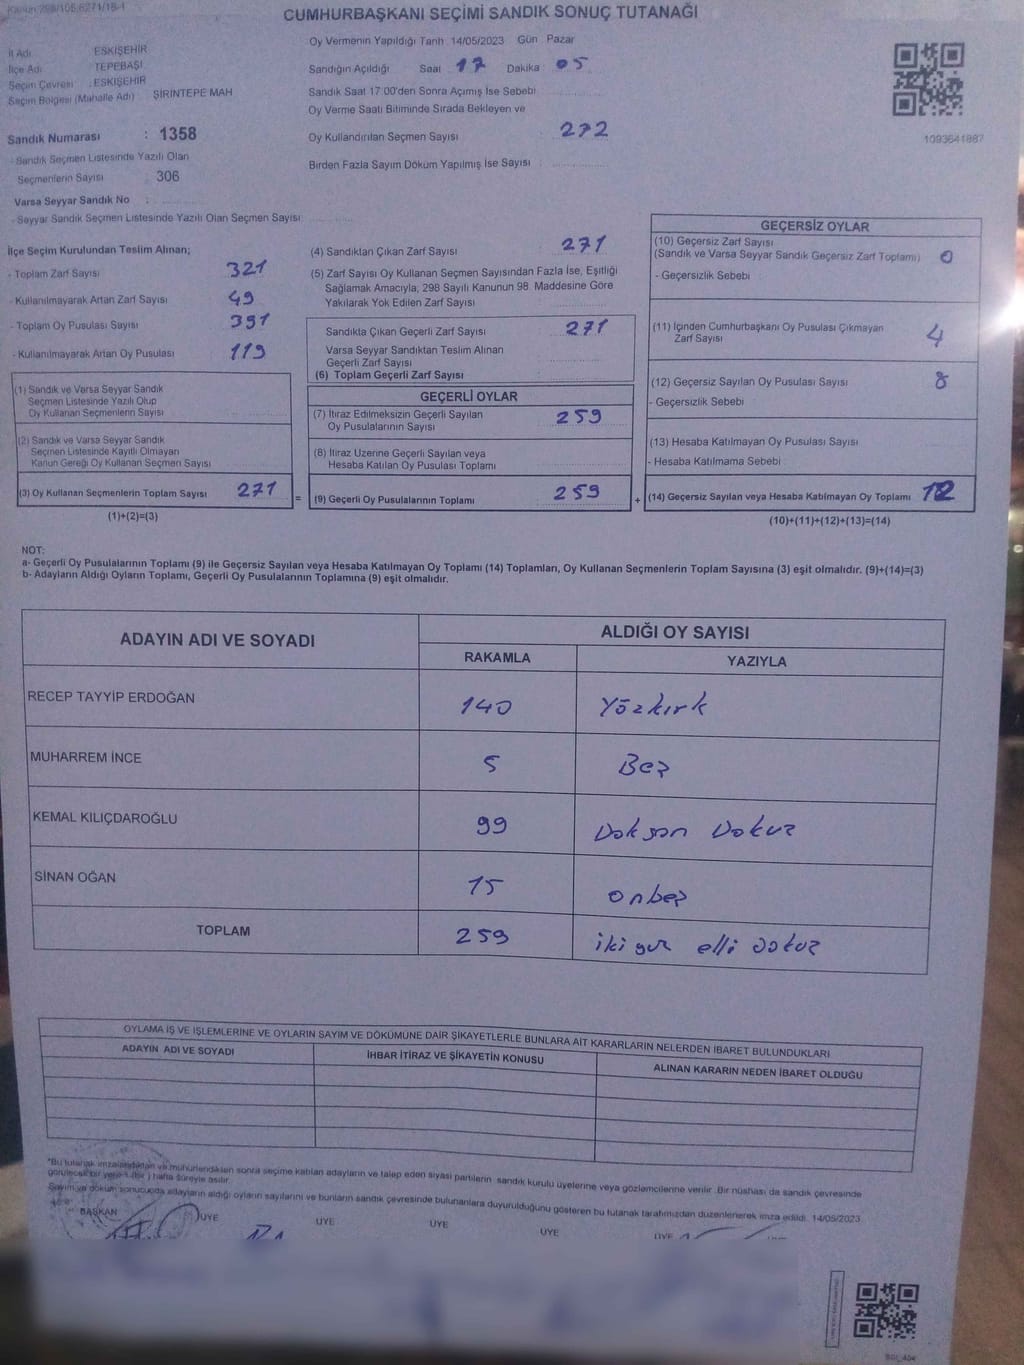 Kanun 298/105,6271/18-1
CUMHURBAŞKANI SEÇİMİ SANDIK SONUÇ TUTANAĞI
İl Adı ESKİŞEHİR
İlçe Adı TEPEBAŞI
Seçim Çevresi : ESKİŞEHİR
Seçim Bölgesi (Mahalle Adı) ŞİRİNTEPE MAH
Sandık Numarası : 1358
- Sandık Seçmen Listesinde Yazılı Olan
Seçmenlerin Sayısı 306
Varsa Seyyar Sandık No :
- Seyyar Sandık Seçmen Listesinde Yazılı Olan Seçmen Sayısı
Oy Vermenin Yapıldığı Tarih 14/05/2023 Gün Pazar
Sandığın Açıldığı Saat 17 Dakika 05
Sandık Saat 17 00'den Sonra Açılmış İse Sebebi
Oy Verme Saati Bitiminde Sırada Bekleyen ve
Oy Kullandırılan Seçmen Sayısı 272
Birden Fazla Sayım Döküm Yapılmış İse Sayısı
1093641887
İlçe Seçim Kurulundan Teslim Alınan;
- Toplam Zarf Sayısı 321
- Kullanılmayarak Artan Zarf Sayısı 49
- Toplam Oy Pusulası Sayısı 391
- Kullanılmayarak Artan Oy Pusulası 119
(1) Sandık ve Varsa Seyyar Sandık
Seçmen Listesinde Yazılı Olup
Oy Kullanan Seçmenlerin Sayısı
(2) Sandık ve Varsa Seyyar Sandık
Seçmen Listesinde Kayıtlı Olmayan
Kanun Gereği Oy Kullanan Seçmen Sayısı
(3) Oy Kullanan Seçmenlerin Toplam Sayısı 271
(1)+(2)=(3)
(4) Sandıktan Çıkan Zarf Sayısı 271
(5) Zarf Sayısı Oy Kullanan Seçmen Sayısından Fazla İse, Eşitliği
Sağlamak Amacıyla, 298 Sayılı Kanunun 98. Maddesine Göre
Yakılarak Yok Edilen Zarf Sayısı
Sandıkta Çıkan Geçerli Zarf Sayısı 271
Varsa Seyyar Sandıktan Teslim Alınan
Geçerli Zarf Sayısı
(6) Toplam Geçerli Zarf Sayısı
GEÇERLİ OYLAR
(7) İtiraz Edilmeksizin Geçerli Sayılan
Oy Pusulalarının Sayısı 259
(8) İtiraz Üzerine Geçerli Sayılan veya
Hesaba Katılan Oy Pusulası Toplamı
= (9) Geçerli Oy Pusulalarının Toplamı 259
GEÇERSİZ OYLAR
(10) Geçersiz Zarf Sayısı
(Sandık ve Varsa Seyyar Sandık Geçersiz Zarf Toplamı) 0
- Geçersizlik Sebebi
(11) İçinden Cumhurbaşkanı Oy Pusulası Çıkmayan
Zarf Sayısı 4
(12) Geçersiz Sayılan Oy Pusulası Sayısı 8
- Geçersizlik Sebebi
(13) Hesaba Katılmayan Oy Pusulası Sayısı
- Hesaba Katılmama Sebebi
+ (14) Geçersiz Sayılan veya Hesaba Katılmayan Oy Toplamı 12
(10)+(11)+(12)+(13)=(14)
NOT:
a- Geçerli Oy Pusulalarının Toplamı (9) ile Geçersiz Sayılan veya Hesaba Katılmayan Oy Toplamı (14) Toplamları, Oy Kullanan Seçmenlerin Toplam Sayısına (3) eşit olmalıdır. (9)+(14)=(3)
b- Adayların Aldığı Oyların Toplamı, Geçerli Oy Pusulalarının Toplamına (9) eşit olmalıdır.
ADAYIN ADI VE SOYADI ALDIĞI OY SAYISI
RAKAMLA YAZIYLA
RECEP TAYYİP ERDOĞAN 140 Yözkırk
MUHARREM İNCE 5 Beş
KEMAL KILIÇDAROĞLU 99 Doksan Dokuz
SİNAN OĞAN 15 onbeş
TOPLAM 259 iki yuz elli dokuz
OYLAMA İŞ VE İŞLEMLERİNE VE OYLARIN SAYIM VE DÖKÜMÜNE DAİR ŞİKAYETLERLE BUNLARA AİT KARARLARIN NELERDEN İBARET BULUNDUKLARI
ADAYIN ADI VE SOYADI İHBAR İTİRAZ VE ŞİKAYETİN KONUSU ALINAN KARARIN NEDEN İBARET OLDUĞU
*Bu tutanak imzalandıktan ve mühürlendikten sonra seçime katılan adayların ve talep eden siyasi partilerin sandık kurulu üyelerine veya gözlemcilerine verilir. Bir nüshası da sandık çevresinde
görülecek bir yere 1 (bir) hafta süreyle asılır.
Sayım ve döküm sonucuda adayların aldığı oyların sayılarını ve bunların sandık çevresinde bulunanlara duyurulduğunu gösteren bu tutanak tarafımızdan düzenlenerek imza edildi. 14/05/2023
BAŞKAN ÜYE ÜYE ÜYE ÜYE ÜYE